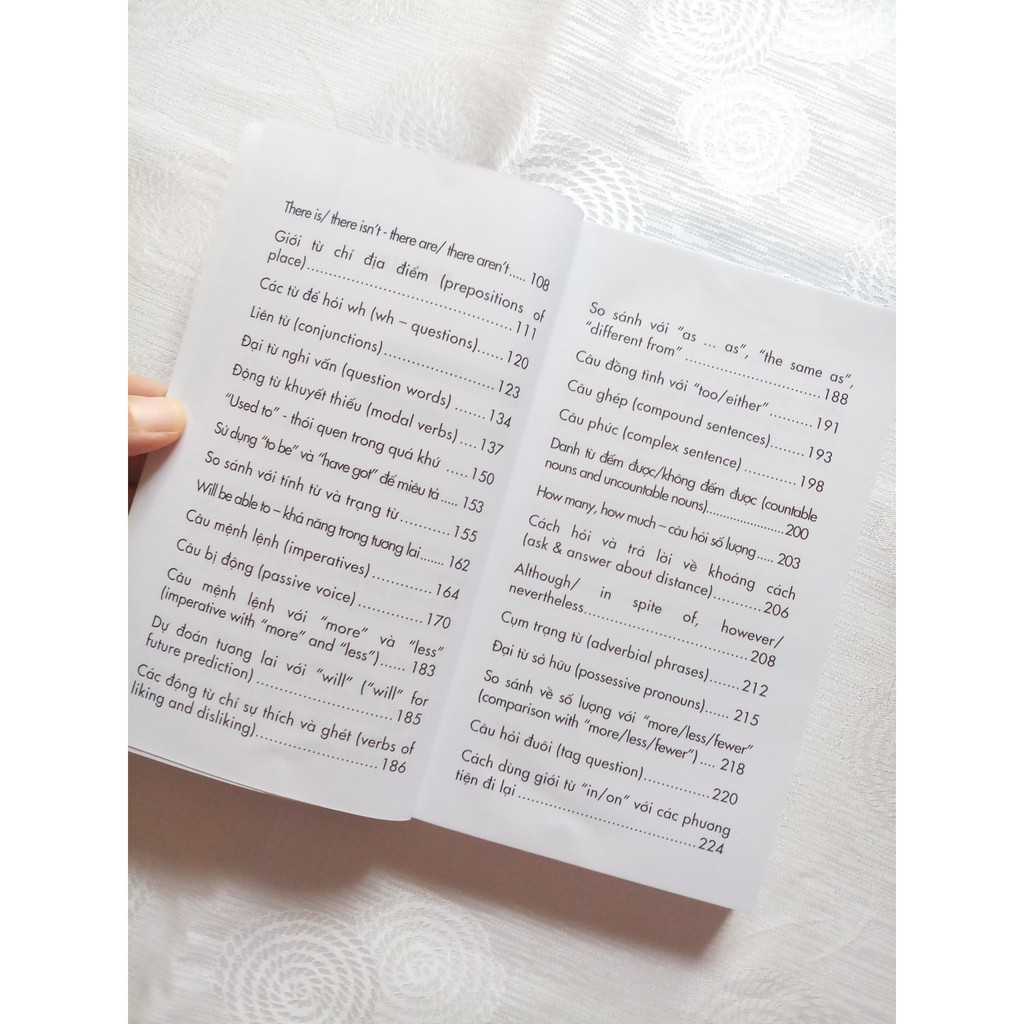 There is/ there isn't - there are/ there aren't..... 108
Giới từ chỉ địa điểm (prepositions of
place)......................................111
Các từ để hỏi wh (wh – questions)......120
Liên từ (conjunctions)........................123
Đại từ nghi vấn (question words) .......134
Động từ khuyết thiếu (modal verbs).... 137
"Used to" - thói quen trong quá khứ ...... 150
Sử dụng "to be" và "have got" để miêu tả ..... 153
So sánh với tính từ và trạng từ ............155
Will be able to – khả năng trong tương lai....... 162
Câu mệnh lệnh (imperatives) ..............164
Câu bị động (passive voice)................170
Câu mệnh lệnh với "more" và "less"
(imperative with "more" and "less")...... 183
Dự đoán tương lai với "will" ("will" for
future prediction) ........................185
Các động từ chỉ sự thích và ghét (verbs of
liking and disliking)......................186
So sánh với "as ... as", "the same as",
"different from" ..........................188
Câu đồng tình với "too/either" ..........191
Câu ghép (compound sentences)..........193
Câu phức (complex sentence) ..............198
Danh từ đếm được/không đếm được (countable
nouns and uncountable nouns)......................200
How many, how much – câu hỏi số lượng..... 203
Cách hỏi và trả lời về khoảng cách
(ask & answer about distance)...........206
Although/ in spite of, however/
nevertheless..............................208
Cụm trạng từ (adverbial phrases).......212
Đại từ sở hữu (possessive pronouns)...... 215
So sánh về số lượng với "more/less/fewer"
(comparison with "more/less/fewer") .... 218
Câu hỏi đuôi (tag question)................220
Cách dùng giới từ "in/on" với các phương
tiện đi lại ....................................224